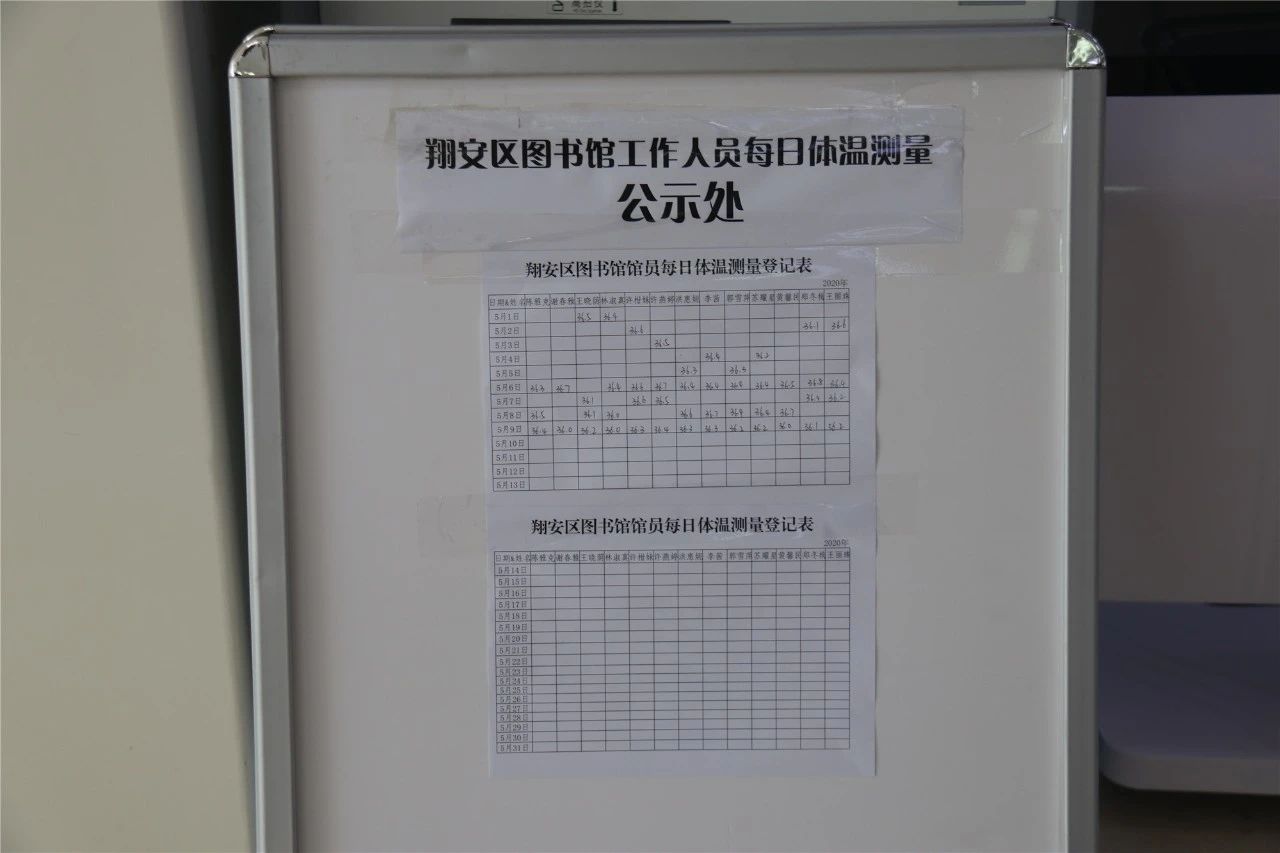 高拍仪
翔安区图书馆工作人员每日体温测量
公示处
翔安区图书馆馆员每日体温测量登记表
2020年
日期&姓名 陈雅克 谢春雅 王晓茵 林淑真 许柑妹 许燕婷 洪惠妮 李茜 郭雪萍 苏耀星 黄馨民 郑冬梅 王丽珠
5月1日 36.5 36.4
5月2日 36.6 36.1 36.6
5月3日 36.5
5月4日 36.4 36.2
5月5日 36.3 36.3
5月6日 36.3 36.7 36.4 36.6 36.7 36.4 36.4 36.4 36.4 36.5 36.8 36.4
5月7日 36.1 36.6 36.5 36.4 36.2
5月8日 36.5 36.1 36.0 36.6 36.7 36.4 36.4 36.7
5月9日 36.4 36.0 36.2 36.0 36.3 36.4 36.3 36.3 36.2 36.2 36.0 36.1 36.2
5月10日
5月11日
5月12日
5月13日
翔安区图书馆馆员每日体温测量登记表
2020年
日期&姓名 陈雅克 谢春雅 王晓茵 林淑真 许柑妹 许燕婷 洪惠妮 李茜 郭雪萍 苏耀星 黄馨民 郑冬梅 王丽珠
5月14日
5月15日
5月16日
5月17日
5月18日
5月19日
5月20日
5月21日
5月22日
5月23日
5月24日
5月25日
5月26日
5月27日
5月28日
5月29日
5月30日
5月31日